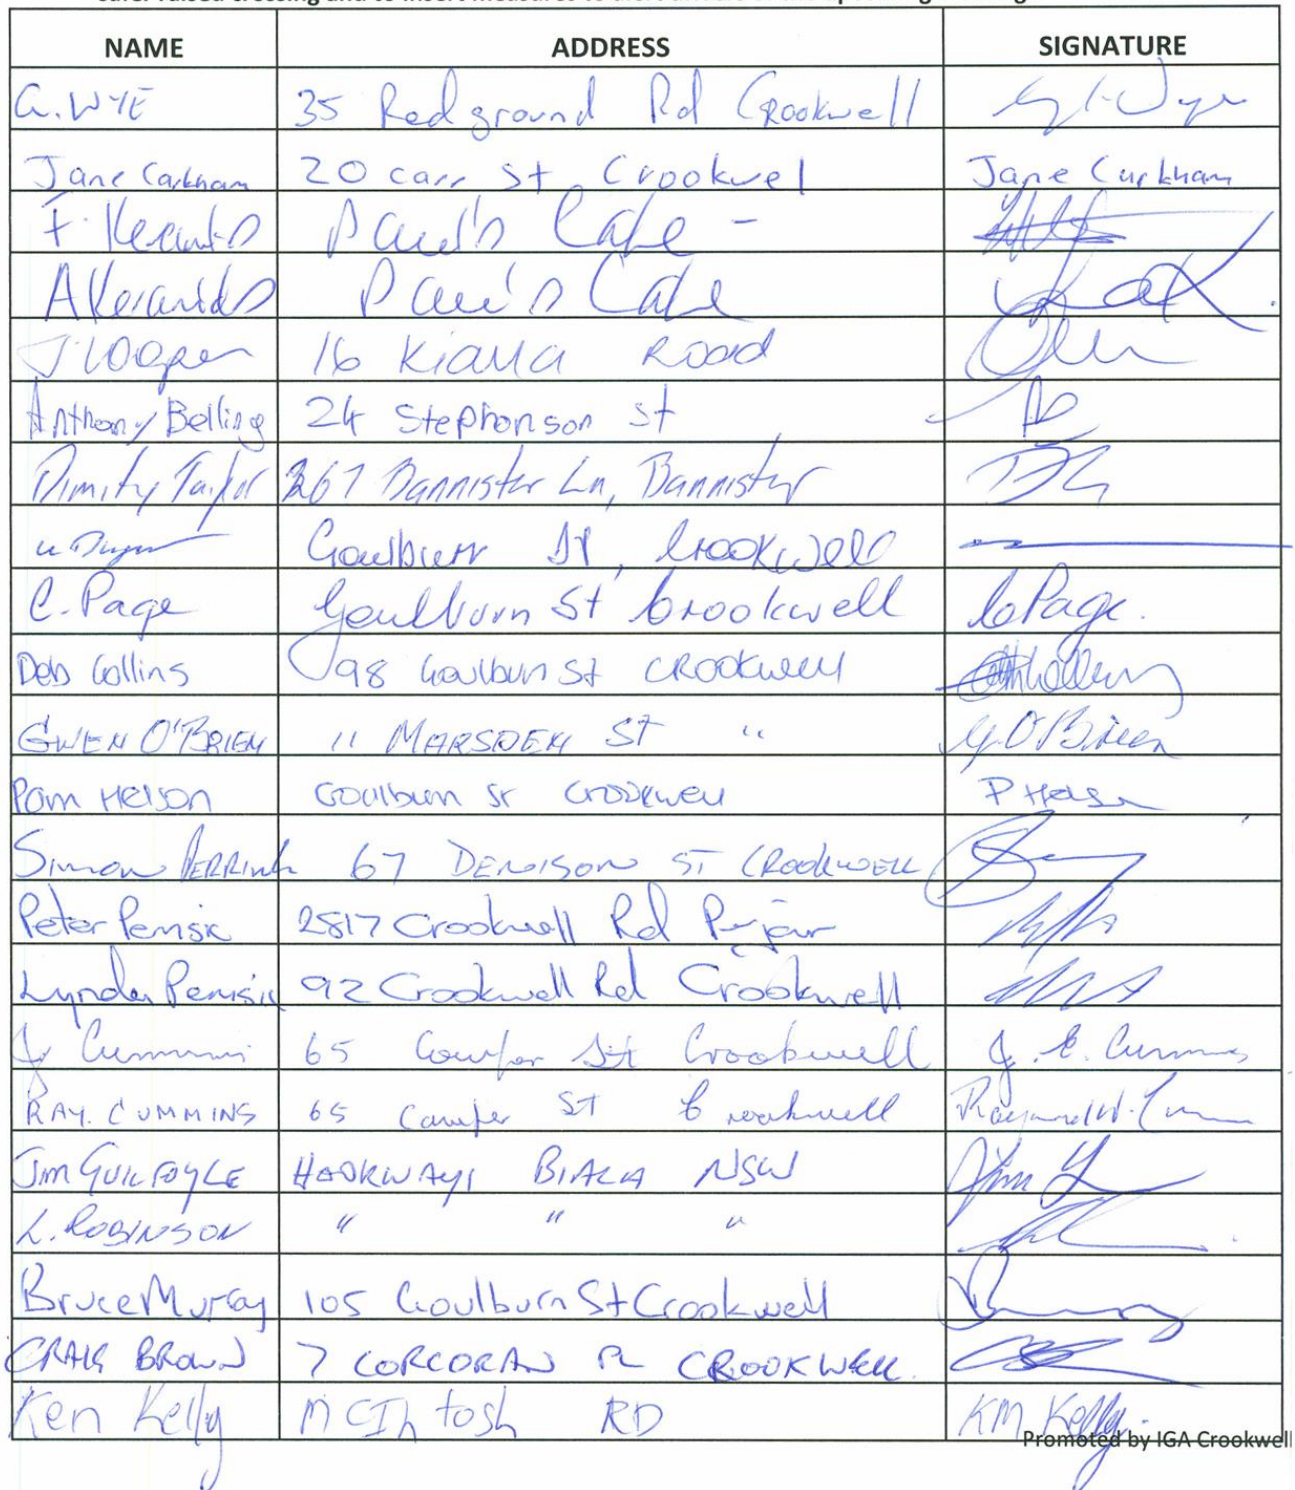 NAME ADDRESS SIGNATURE
G. WYE 35 Redground Rd Crookwell
Jane Carkham 20 carr St, Crookwel Jane Curkham
F. Paul's Cafe -
A Paul's Cafe
J Cooper 16 Kiama Road
Anthony Belling 24 Stephonson St
Dimity Taylor 267 Bannister Ln, Bannister
Goulburn St, Crookwell
C. Page Goulburn St Crookwell C Page.
Deb Collins 98 Goulburn St CROOKWELL
GWEN O'BRIEN 11 MARSDEN ST " G. O'Brien
Pam Nelson Goulburn St Crookwell
Simon PERRING 67 DENISON ST CROOKWELL
Peter Perisic 2817 Crookwell Rd Pejar
Lynda Perisic 92 Crookwell Rd Crookwell
J Cummins 65 Cowper St Crookwell J. E. Cummins
RAY. CUMMINS 65 Cowper ST Crookwell Raymond W. Cummins
JIM GUILFOYLE BIALA NSW
L. ROBINSON " " "
Bruce Murray 105 Goulburn St Crookwell
CRAIG BROWN 7 CORCORAN PL CROOKWELL.
Ken Kelly MCIntosh RD KM Kelly.
Promoted by IGA Crookwell